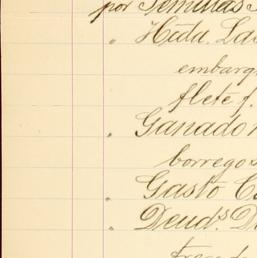 por Semillas
" Hcda. La
embarg
flete f.
" Ganado
borregos
" Gasto C
" Deud.s D